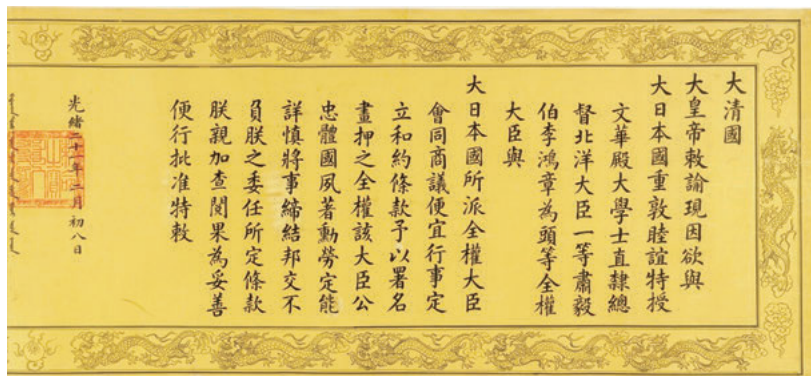 大清國
大皇帝敕諭現因欲與
大日本國重敦睦誼特授
文華殿大學士直隸總
督北洋大臣一等肅毅
伯李鴻章為頭等全權
大臣與
大日本國所派全權大臣
會同商議便宜行事定
立和約條款予以署名
畫押之全權該大臣公
忠體國夙著勳勞定能
詳慎將事締結邦交不
負朕之委任所定條款
朕親加查閱果為妥善
便行批准特敕
光緒二十一年二月初八日